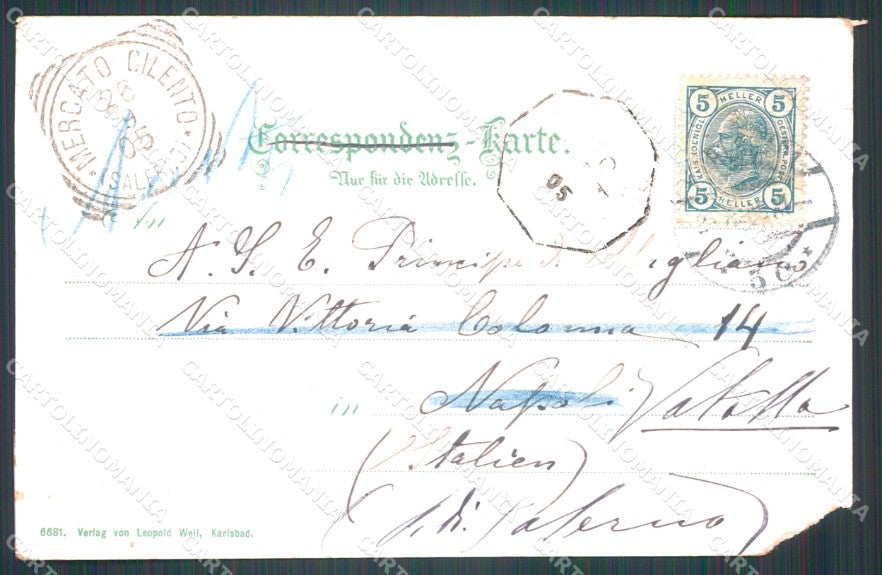 MERCATO CILENTO
(SALERNO)
Correspondenz-Karte.
Nur für die Adresse.
05
5 HELLER 5
5 HELLER 5
An
A. S. E. Principe di Migliano
Via Vittoria Colonna 14
in Napoli Vatolla
(Italien)
P. di Salerno
6681. Verlag von Leopold Weil, Karlsbad.
CARTOLINOMANIA